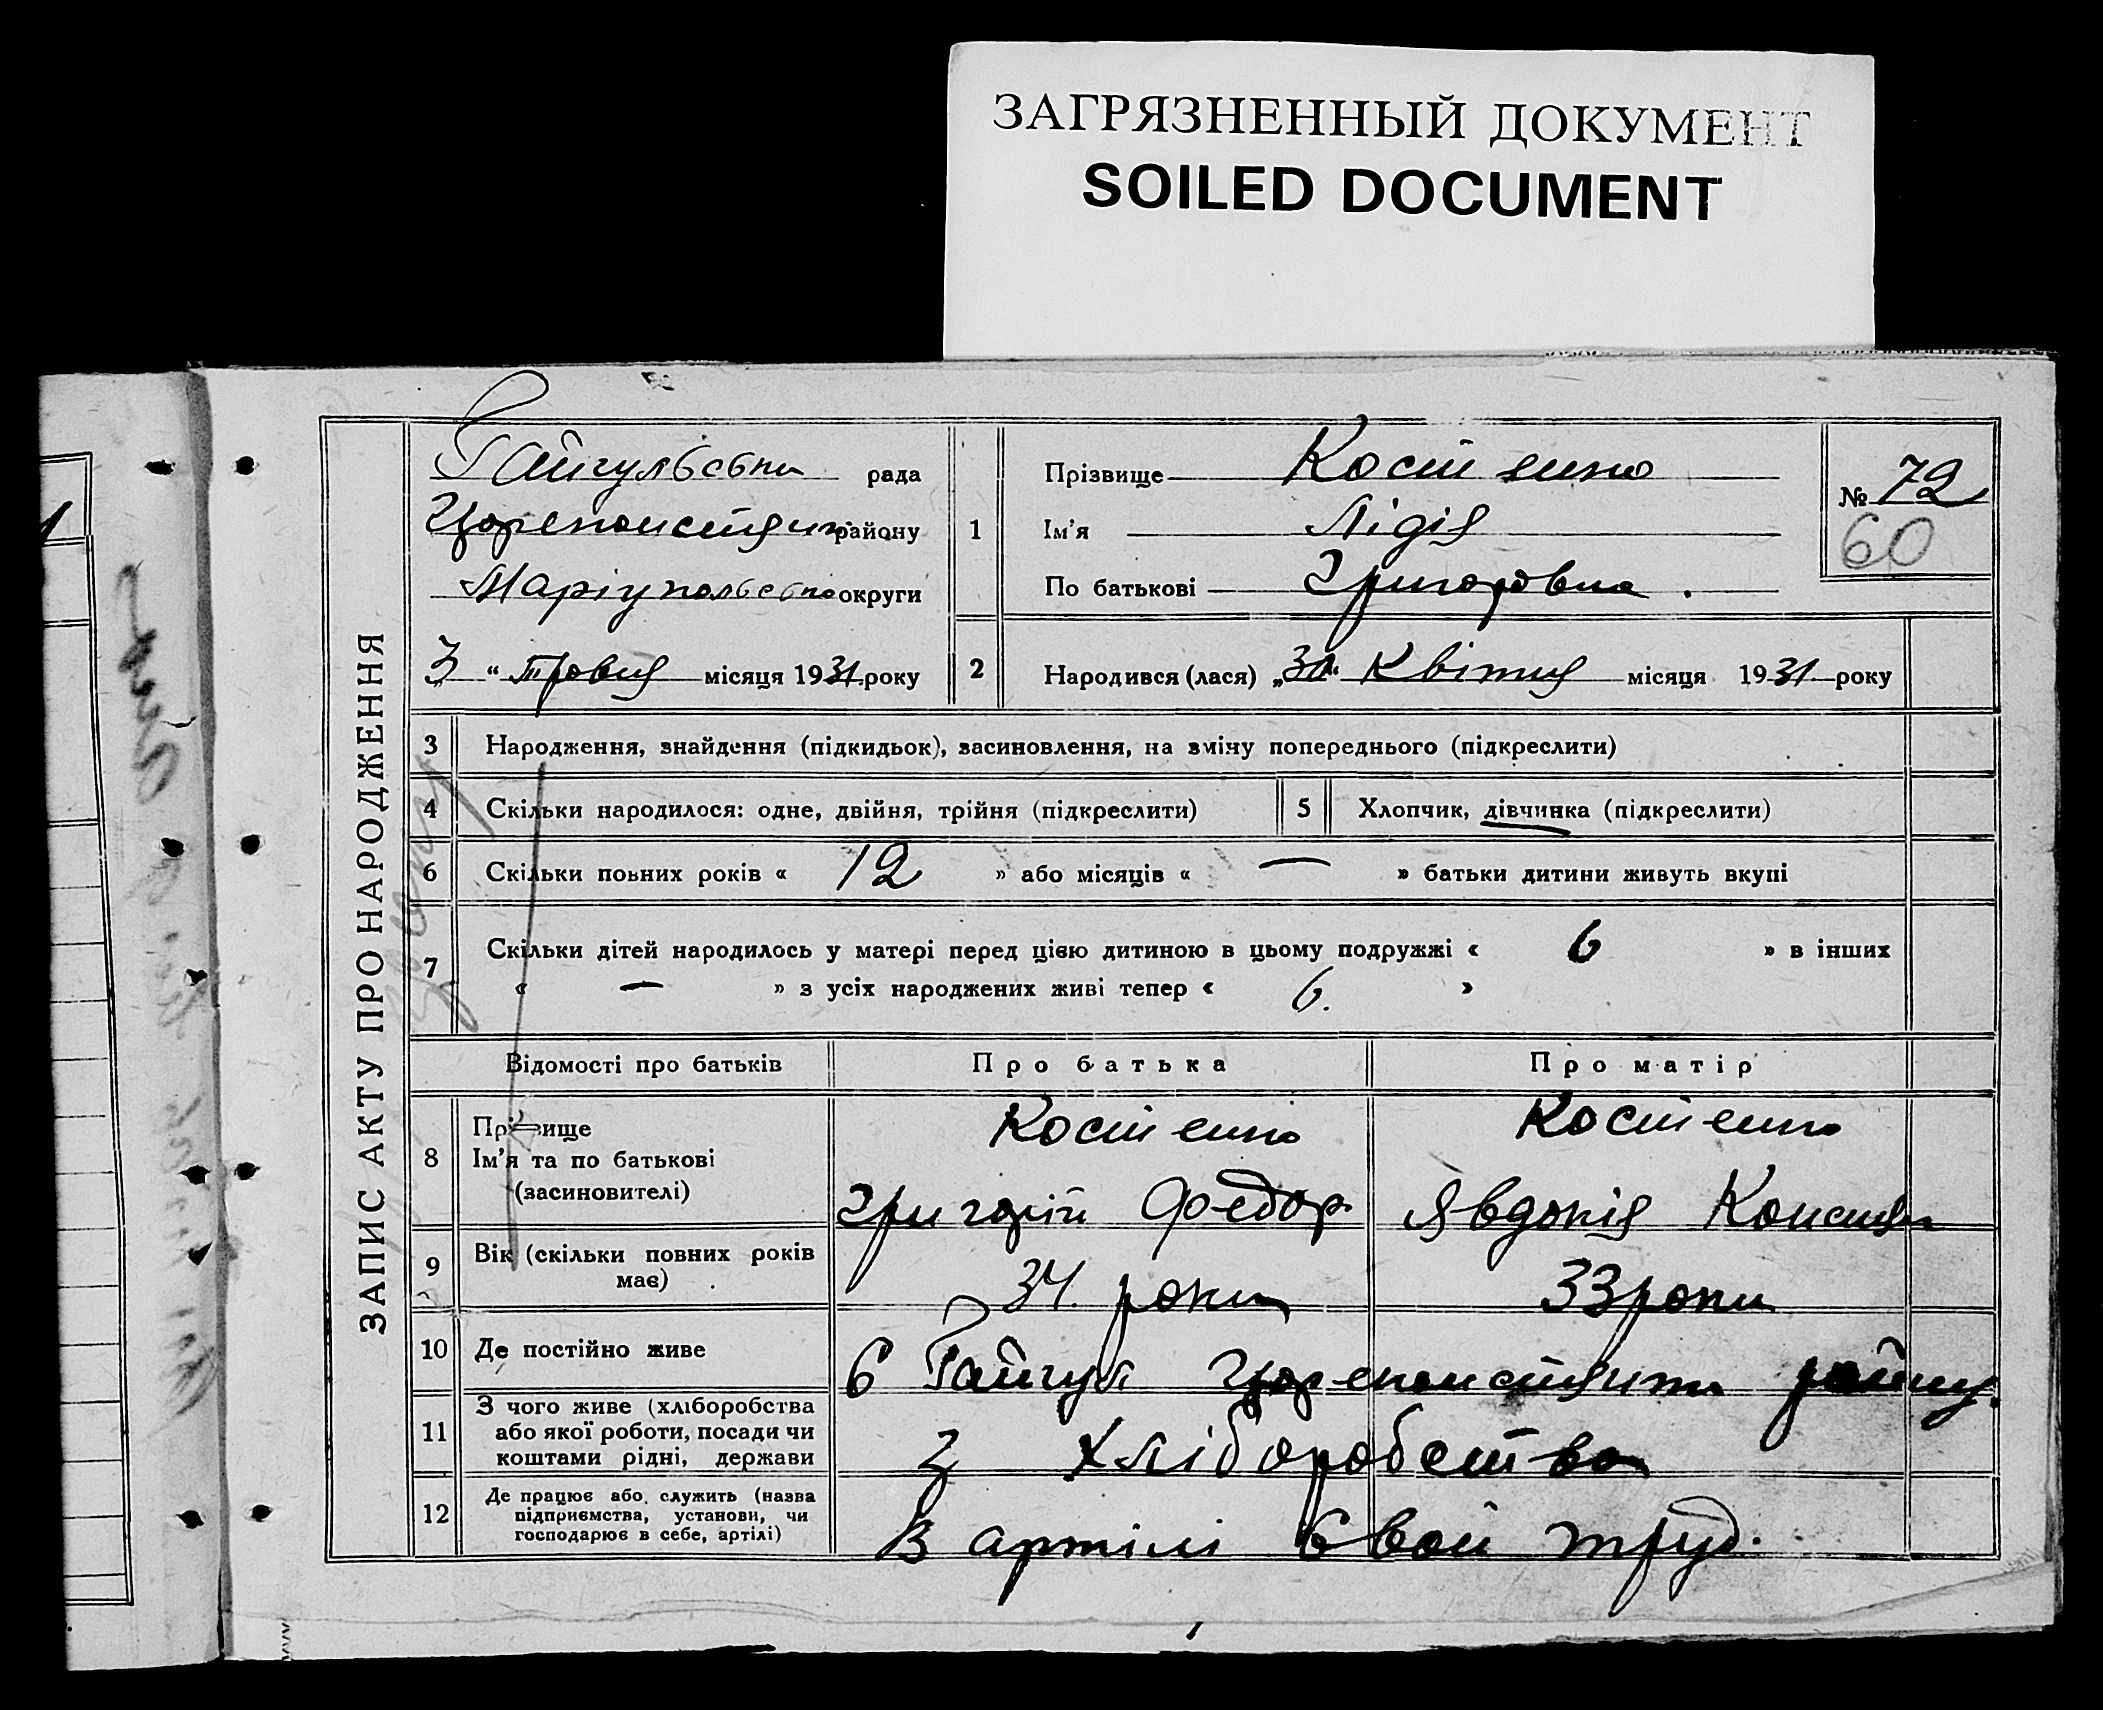 ЗАГРЯЗНЕННЫЙ ДОКУМЕНТ
SOILED DOCUMENT
ЗАПИС АКТУ ПРО НАРОДЖЕННЯ
рада
району
Маріупольська округи
3 " Травня місяця 1931 року
1
Прізвище Костенко
Ім'я Лідія
По батькові Григоровна.
№ 72
60
2 Народився (лася) „30" Квітня місяця 1931 року
3 Народження, знайдення (підкидьок), засиновлення, на зміну попереднього (підкреслити)
4 Скільки народилося: одне, двійня, трійня (підкреслити)
5 Хлопчик, дівчинка (підкреслити)
6 Скільки повних років « 12 » або місяців « — » батьки дитини живуть вкупі
7 Скільки дітей народилось у матері перед цією дитиною в цьому подружжі « 6 » в інших
« — » з усіх народжених живі тепер « 6. »
Відомості про батьків
Про батька
Про матір
8 Прізвище
Ім'я та по батькові
(засиновителі)
Костенко
Григорій Федор
Костенко
Явдокія
9 Вік (скільки повних років
має)
34. роки
33 роки
10 Де постійно живе
11 З чого живе (хліборобства
або якої роботи, посади чи
коштами рідні, держави
З Хліборобства
12 Де працює або служить (назва
підприємства, установи, чи
господарює в себе, артілі)
В артілі Свой труд.